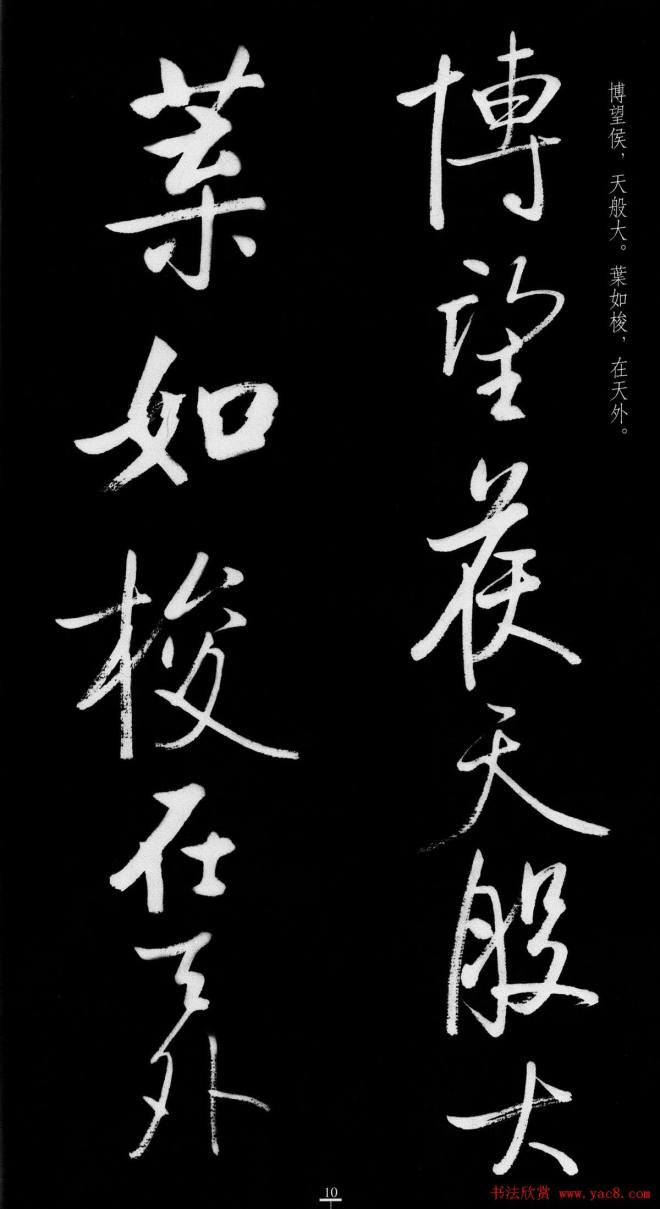 博望侯，天般大。葉如梭，在天外。
博望侯天般大
葉如梭在天外
10
书法欣赏 www.yac8.com